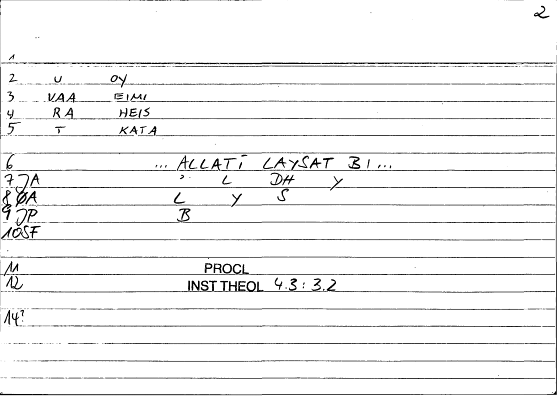 2
1
2 U OY
3 VAA EIMI
4 RA HEIS
5 T KATA
6 ... ALLATI LAYSAT BI...
7 JA ' L DH Y
8 ØA L Y S
9 JP B
10 SF
11 PROCL
12 INST THEOL 4.3:3.2
14?